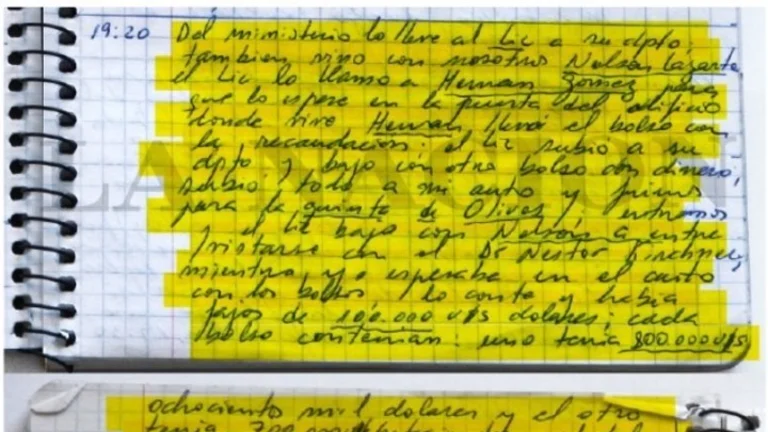 19:20 Del ministerio lo lleve al Lic a su dpto,
tambien vino con nosotros Nelson Lazarte
el Lic lo llamo a Hernan Gomez para
que lo espere en la puerta del edificio
donde vive Hernan llevó el bolso con
la recaudacion; el Lic subio a su
dpto y bajo con otro bolso con dinero,
subio todo a mi auto y fuimos
para la quinta de Olivos, entramos
y el Lic bajo con Nelson a entre
vistarse con el Dr Nestor Kirchner,
mientras yo esperaba en el auto
con los bolsos lo conte y habia
fajos de 100.000 u$s dolares; cada
bolso contenian: uno tenia 800.000 u$s
ochociento mil dolares y el otro
tenia 700.000
LA NACION